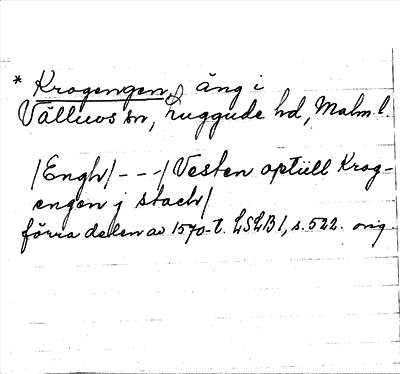 * Krogengen, äng i
Välluvs sn, Luggude hd, Malm. l.
/Engh/ - - - / Vesten optill Krog-
engen j stach/
förra delen av 1570-t. LSLB 1, s. 522. orig.